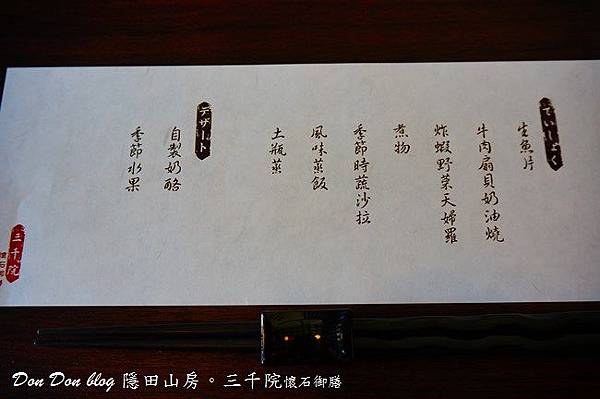 ていしょく
生魚片
牛肉扇貝奶油燒
炸蝦野菜天婦羅
煮物
季節時蔬沙拉
風味蒸飯
土瓶蒸
デザート
自製奶酪
季節水果
三千院
Don Don blog 隱田山房。三千院懷石御膳